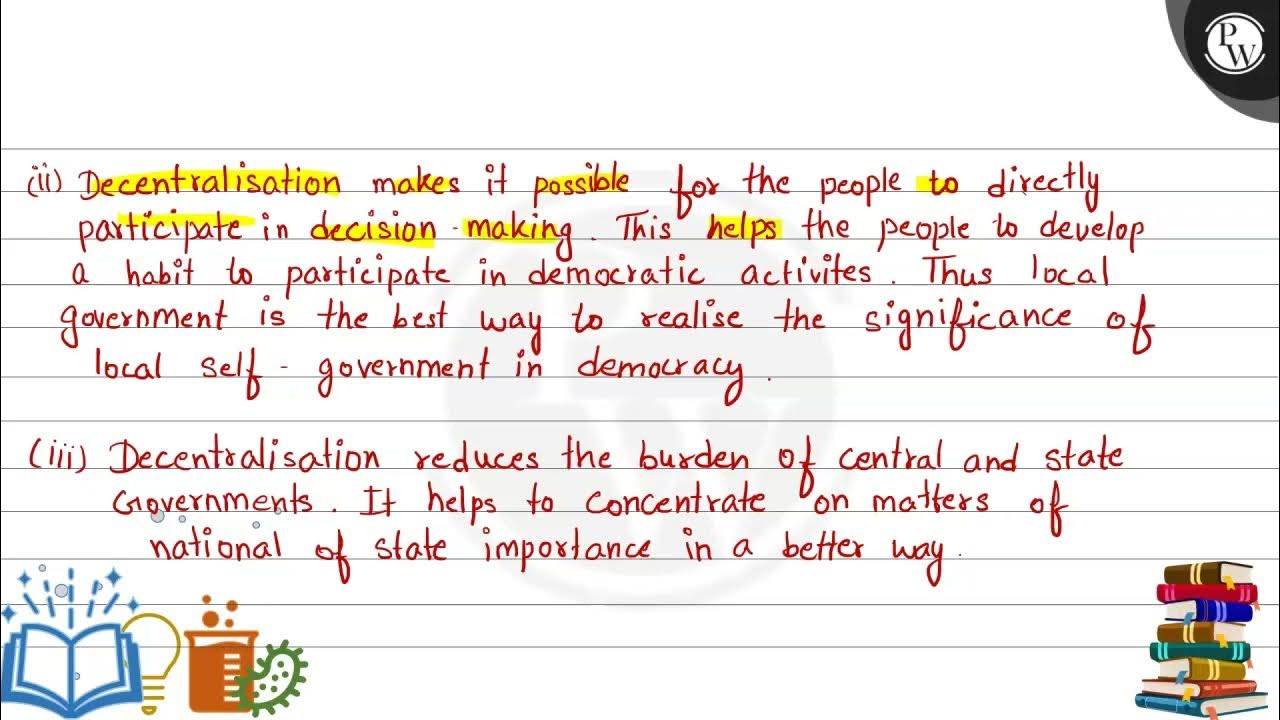 PW
(ii) Decentralisation makes it possible for the people to directly
participate in decision-making. This helps the people to develop
a habit to participate in democratic activites. Thus local
government is the best way to realise the significance of
local self-government in democracy.
(iii) Decentralisation reduces the burden of central and state
Governments. It helps to concentrate on matters of
national of state importance in a better way.